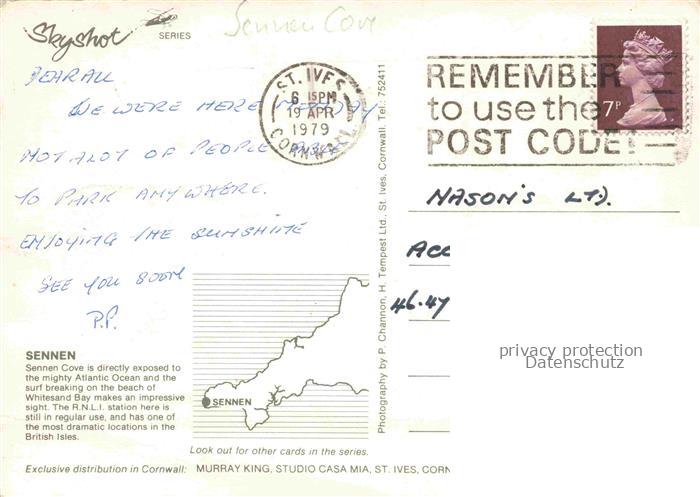 Skyshot
SERIES
Sennen Cove
DEAR ALL
WE WERE HERE
NOT ALOT OF PEOPLE
TO PARK ANYWHERE.
ENJOYING THE SUNSHINE
SEE YOU SOON
P.P.
ST. IVES
6 15PM
19 APR
1979
CORNWALL
REMEMBER
to use the
POST CODE!
7P
NASON'S LTD.
ACC
46.47
privacy protection
Datenschutz
Photography by P. Channon, H. Tempest Ltd., St. Ives, Cornwall. Tel.: 752411
SENNEN
Sennen Cove is directly exposed to
the mighty Atlantic Ocean and the
surf breaking on the beach of
Whitesand Bay makes an impressive
sight. The R.N.L.I. station here is
still in regular use, and has one of
the most dramatic locations in the
British Isles.
SENNEN
Look out for other cards in the series.
Exclusive distribution in Cornwall: MURRAY KING, STUDIO CASA MIA, ST. IVES, CORN